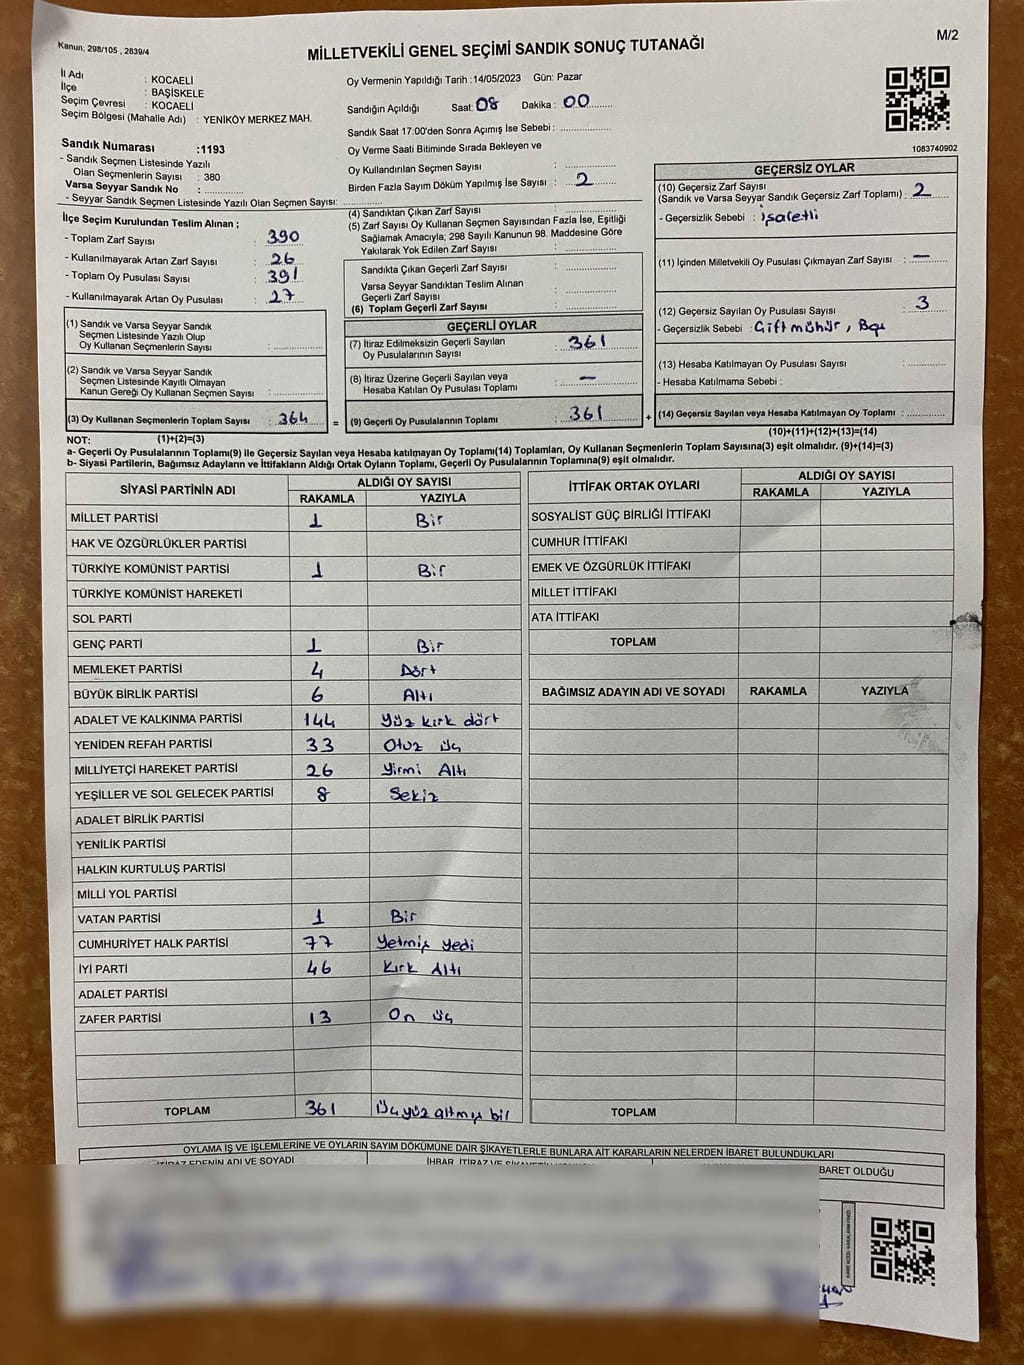 Kanun; 298/105 , 2839/4
MİLLETVEKİLİ GENEL SEÇİMİ SANDIK SONUÇ TUTANAĞI
M/2
İl Adı : KOCAELİ
İlçe : BAŞİSKELE
Seçim Çevresi : KOCAELİ
Seçim Bölgesi (Mahalle Adı) : YENİKÖY MERKEZ MAH.
Oy Vermenin Yapıldığı Tarih :14/05/2023 Gün: Pazar
Sandığın Açıldığı Saat: 08 Dakika : 00
Sandık Saat 17:00'den Sonra Açımış İse Sebebi :
Oy Verme Saati Bitiminde Sırada Bekleyen ve
Oy Kullandırılan Seçmen Sayısı :
Birden Fazla Sayım Döküm Yapılmış İse Sayısı : 2
1083740902
Sandık Numarası :1193
- Sandık Seçmen Listesinde Yazılı
Olan Seçmenlerin Sayısı : 380
Varsa Seyyar Sandık No :
- Seyyar Seçmen Listesinde Yazılı Olan Seçmen Sayısı:
İlçe Seçim Kurulundan Teslim Alınan ;
- Toplam Zarf Sayısı : 390
- Kullanılmayarak Artan Zarf Sayısı : 26
- Toplam Oy Pusulası Sayısı : 391
- Kullanılmayarak Artan Oy Pusulası : 27
(1) Sandık ve Varsa Seyyar Sandık
Seçmen Listesinde Yazılı Olup
Oy Kullanan Seçmenlerin Sayısı :
(2) Sandık ve Varsa Seyyar Sandık
Seçmen Listesinde Kayıtlı Olmayan
Kanun Gereği Oy Kullanan Seçmen Sayısı :
(3) Oy Kullanan Seçmenlerin Toplam Sayısı : 364
(4) Sandıktan Çıkan Zarf Sayısı :
(5) Zarf Sayısı Oy Kullanan Seçmen Sayısından Fazla İse, Eşitliği
Sağlamak Amacıyla; 298 Sayılı Kanunun 98. Maddesine Göre
Yakılarak Yok Edilen Zarf Sayısı :
Sandıkta Çıkan Geçerli Zarf Sayısı :
Varsa Seyyar Sandıktan Teslim Alınan
Geçerli Zarf Sayısı :
(6) Toplam Geçerli Zarf Sayısı :
GEÇERLİ OYLAR
(7) İtiraz Edilmeksizin Geçerli Sayılan
Oy Pusulalarının Sayısı : 361
(8) İtiraz Üzerine Geçerli Sayılan veya
Hesaba Katılan Oy Pusulası Toplamı : —
= (9) Geçerli Oy Pusulalarının Toplamı : 361
GEÇERSİZ OYLAR
(10) Geçersiz Zarf Sayısı
(Sandık ve Varsa Seyyar Sandık Geçersiz Zarf Toplamı) : 2
- Geçersizlik Sebebi : işaletli
(11) İçinden Milletvekili Oy Pusulası Çıkmayan Zarf Sayısı : —
(12) Geçersiz Sayılan Oy Pusulası Sayısı : 3
- Geçersizlik Sebebi : Çift mühür , Boş
(13) Hesaba Katılmayan Oy Pusulası Sayısı :
- Hesaba Katılmama Sebebi :
+ (14) Geçersiz Sayılan veya Hesaba Katılmayan Oy Toplamı :
NOT: (1)+(2)=(3)
(10)+(11)+(12)+(13)=(14)
a- Geçerli Oy Pusulalarının Toplamı(9) ile Geçersiz Sayılan veya Hesaba katılmayan Oy Toplamı(14) Toplamları, Oy Kullanan Seçmenlerin Toplam Sayısına(3) eşit olmalıdır. (9)+(14)=(3)
b- Siyasi Partilerin, Bağımsız Adayların ve İttifakların Aldığı Ortak Oyların Toplamı, Geçerli Oy Pusulalarının Toplamına(9) eşit olmalıdır.
SİYASİ PARTİNİN ADI ALDIĞI OY SAYISI
RAKAMLA YAZIYLA
MİLLET PARTİSİ 1 Bir
HAK VE ÖZGÜRLÜKLER PARTİSİ
TÜRKİYE KOMÜNİST PARTİSİ 1 Bir
TÜRKİYE KOMÜNİST HAREKETİ
SOL PARTİ
GENÇ PARTİ 1 Bir
MEMLEKET PARTİSİ 4 Dört
BÜYÜK BİRLİK PARTİSİ 6 Altı
ADALET VE KALKINMA PARTİSİ 144 Yüz kırk dört
YENİDEN REFAH PARTİSİ 33 Otuz üç
MİLLİYETÇİ HAREKET PARTİSİ 26 Yirmi Altı
YEŞİLLER VE SOL GELECEK PARTİSİ 8 Sekiz
ADALET BİRLİK PARTİSİ
YENİLİK PARTİSİ
HALKIN KURTULUŞ PARTİSİ
MİLLİ YOL PARTİSİ
VATAN PARTİSİ 1 Bir
CUMHURİYET HALK PARTİSİ 77 Yetmiş yedi
İYİ PARTİ 46 Kırk Altı
ADALET PARTİSİ
ZAFER PARTİSİ 13 On üç
TOPLAM 361 Üç yüz altmış bir
İTTİFAK ORTAK OYLARI ALDIĞI OY SAYISI
RAKAMLA YAZIYLA
SOSYALİST GÜÇ BİRLİĞİ İTTİFAKI
CUMHUR İTTİFAKI
EMEK VE ÖZGÜRLÜK İTTİFAKI
MİLLET İTTİFAKI
ATA İTTİFAKI
TOPLAM
BAĞIMSIZ ADAYIN ADI VE SOYADI RAKAMLA YAZIYLA
TOPLAM
OYLAMA İŞ VE İŞLEMLERİNE VE OYLARIN SAYIM DÖKÜMÜNE DAİR ŞİKAYETLERLE BUNLARA AİT KARARLARIN NELERDEN İBARET BULUNDUKLARI
EDENİN ADI VE SOYADI
İHBAR, İTİRAZ VE
BARET OLDUĞU